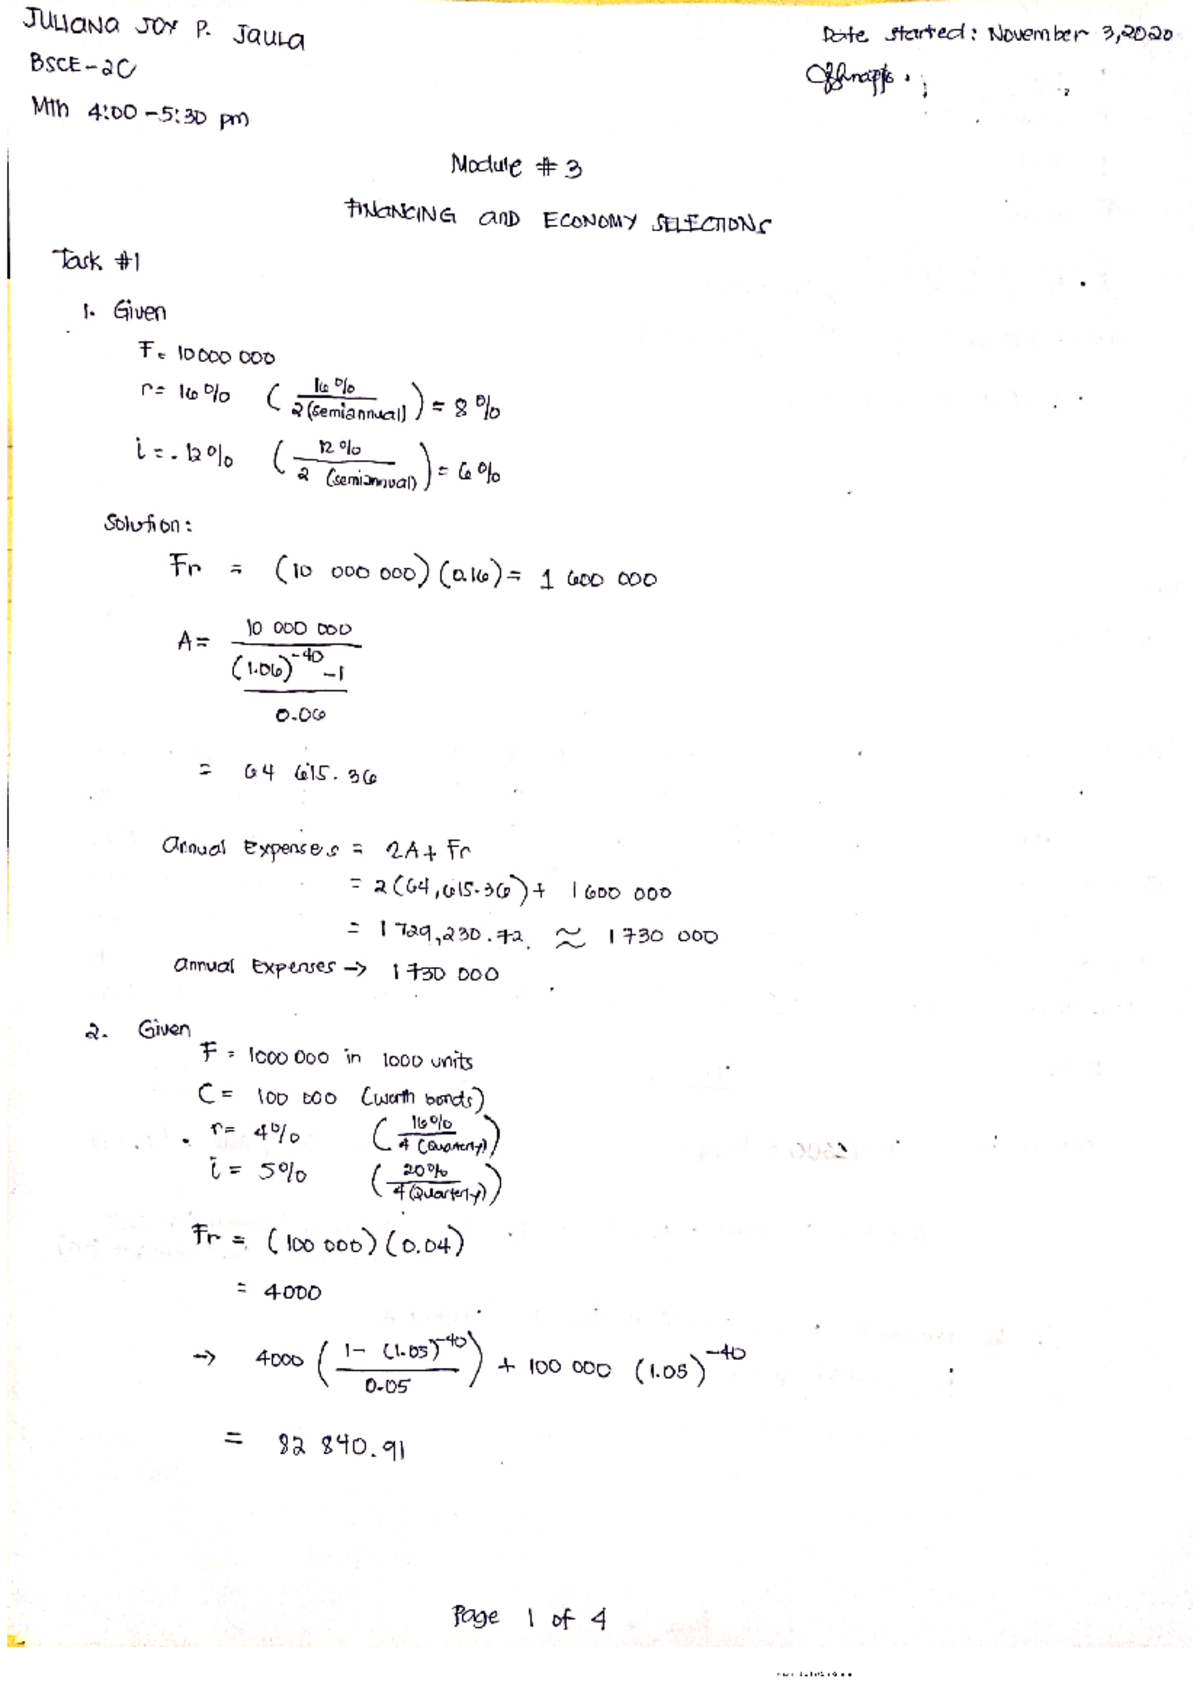 JULIANA JOY P. JAULA
Date started: November 3, 2020
BSCE-2C
Mth 4:00-5:30 pm
Module # 3
FINANCING AND ECONOMY SELECTIONS
Task #1
1. Given
F = 10 000 000
r = 16% (16% / 2 (semiannual)) = 8%
i = . 12% (12% / 2 (semiannual)) = 6%
Solution:
Fr = (10 000 000)(0.16) = 1 600 000
A = 10 000 000 / (((1.06)^-40 - 1) / 0.06)
= 64 615.36
Annual Expenses = 2A + Fr
= 2(64,615.36) + 1 600 000
= 1 729,230.72. ≈ 1 730 000
Annual Expenses → 1 730 000
2. Given
F = 1000 000 in 1000 units
C = 100 000 (worth bonds)
r = 4% (16% / 4 (Quarterly))
i = 5% (20% / 4 (Quarterly))
Fr = (100 000)(0.04)
= 4000
→ 4000 ((1 - (1.05)^-40) / 0.05) + 100 000 (1.05)^-40
= 82 840.91
Page 1 of 4